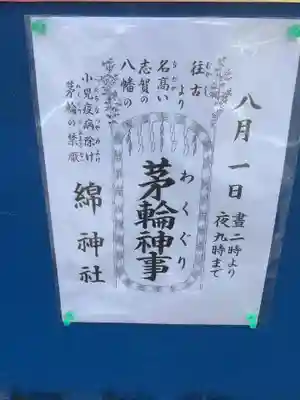 八月一日
晝二時より
夜九時まで
往古
むかし
より
名高い
なだか
志賀の
八幡の
わくぐり
茅輪神事
小児疫病除け
茅輪の祭厳
綿神社